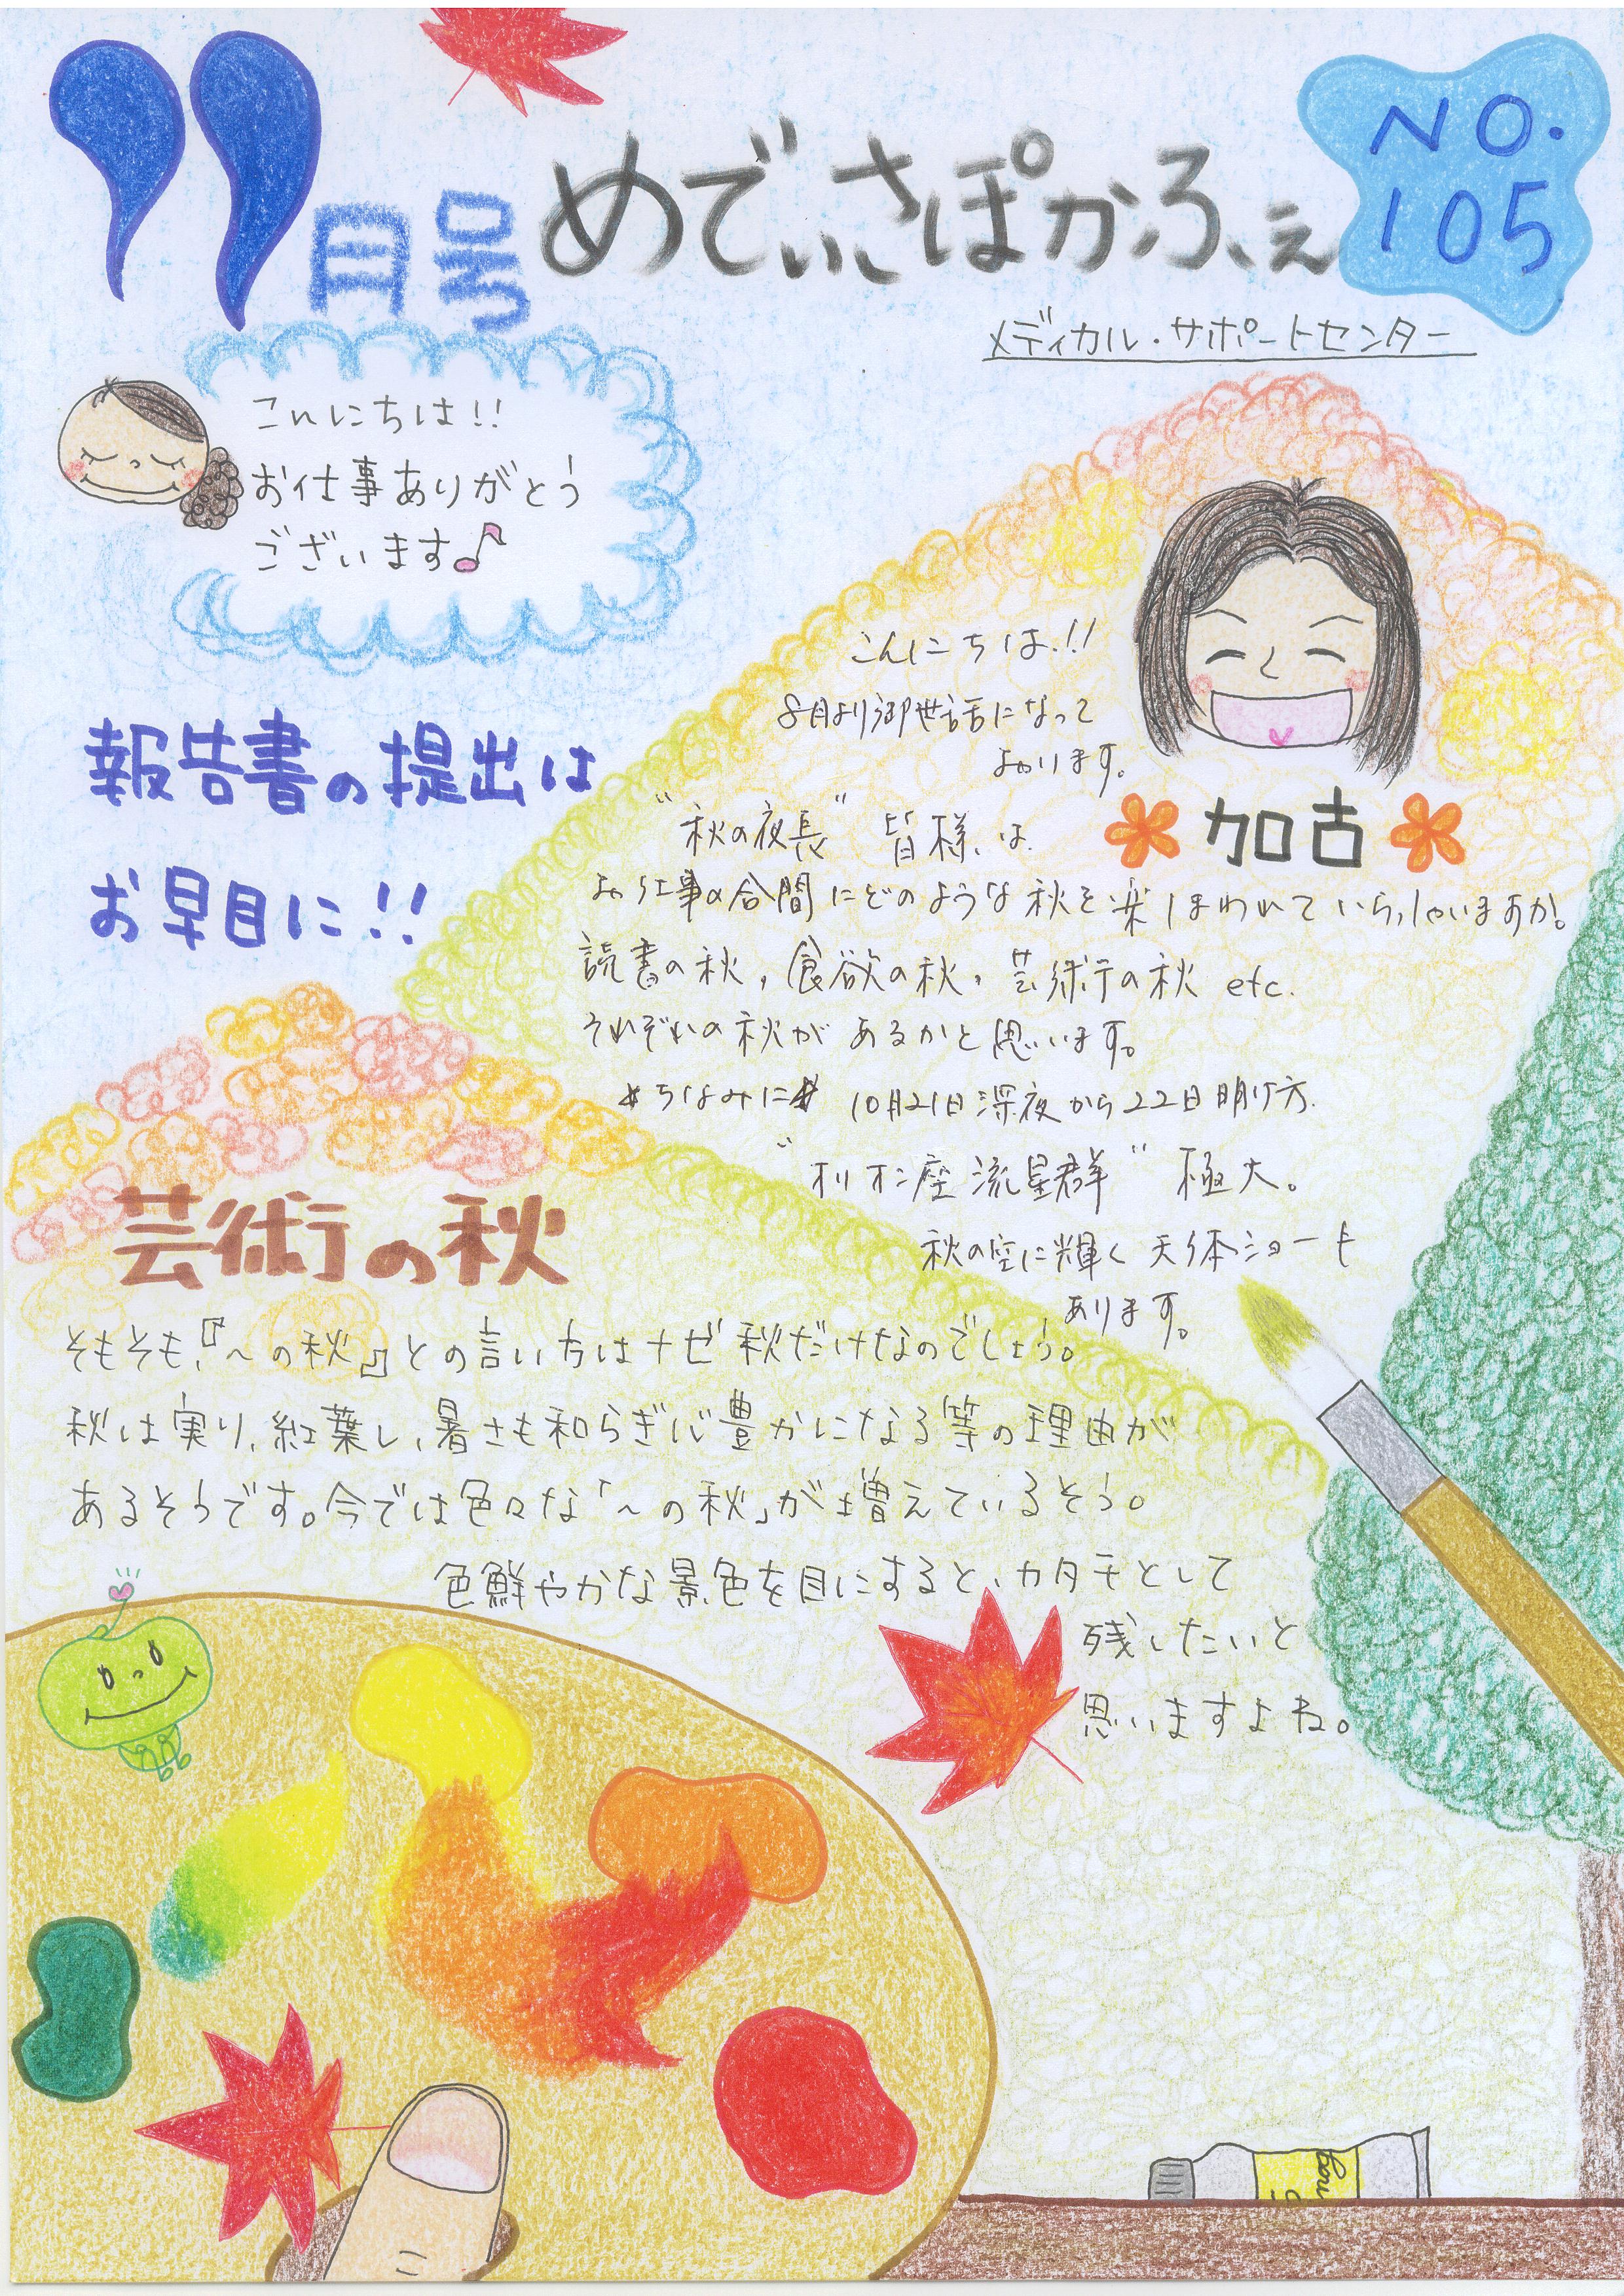 11月号
めでぃさぽかふぇ
NO.
105
メディカル・サポートセンター
こんにちは!!
お仕事ありがとう
ございます♪
報告書の提出は
お早目に!!
こんにちは!!
8月より御世話になって
おります。
加古
"秋の夜長" 皆様は
お仕事の合間にどのような秋を楽しまわれていらっしゃいますか。
読書の秋, 食欲の秋, 芸術の秋 etc.
それぞれの秋があるかと思います。
☆ちなみに☆ 10月21日深夜から22日明け方
"オリオン座流星群" 極大。
秋の空に輝く天体ショーも
あります。
芸術の秋
そもそも、『~の秋』との言い方はナゼ秋だけなのでしょう。
秋は実り、紅葉し、暑さも和らぎ心豊かになる等の理由が
あるそうです。今では色々な「~の秋」が増えているそう。
色鮮やかな景色を目にすると、カタチとして
残したいと
思いますよね。